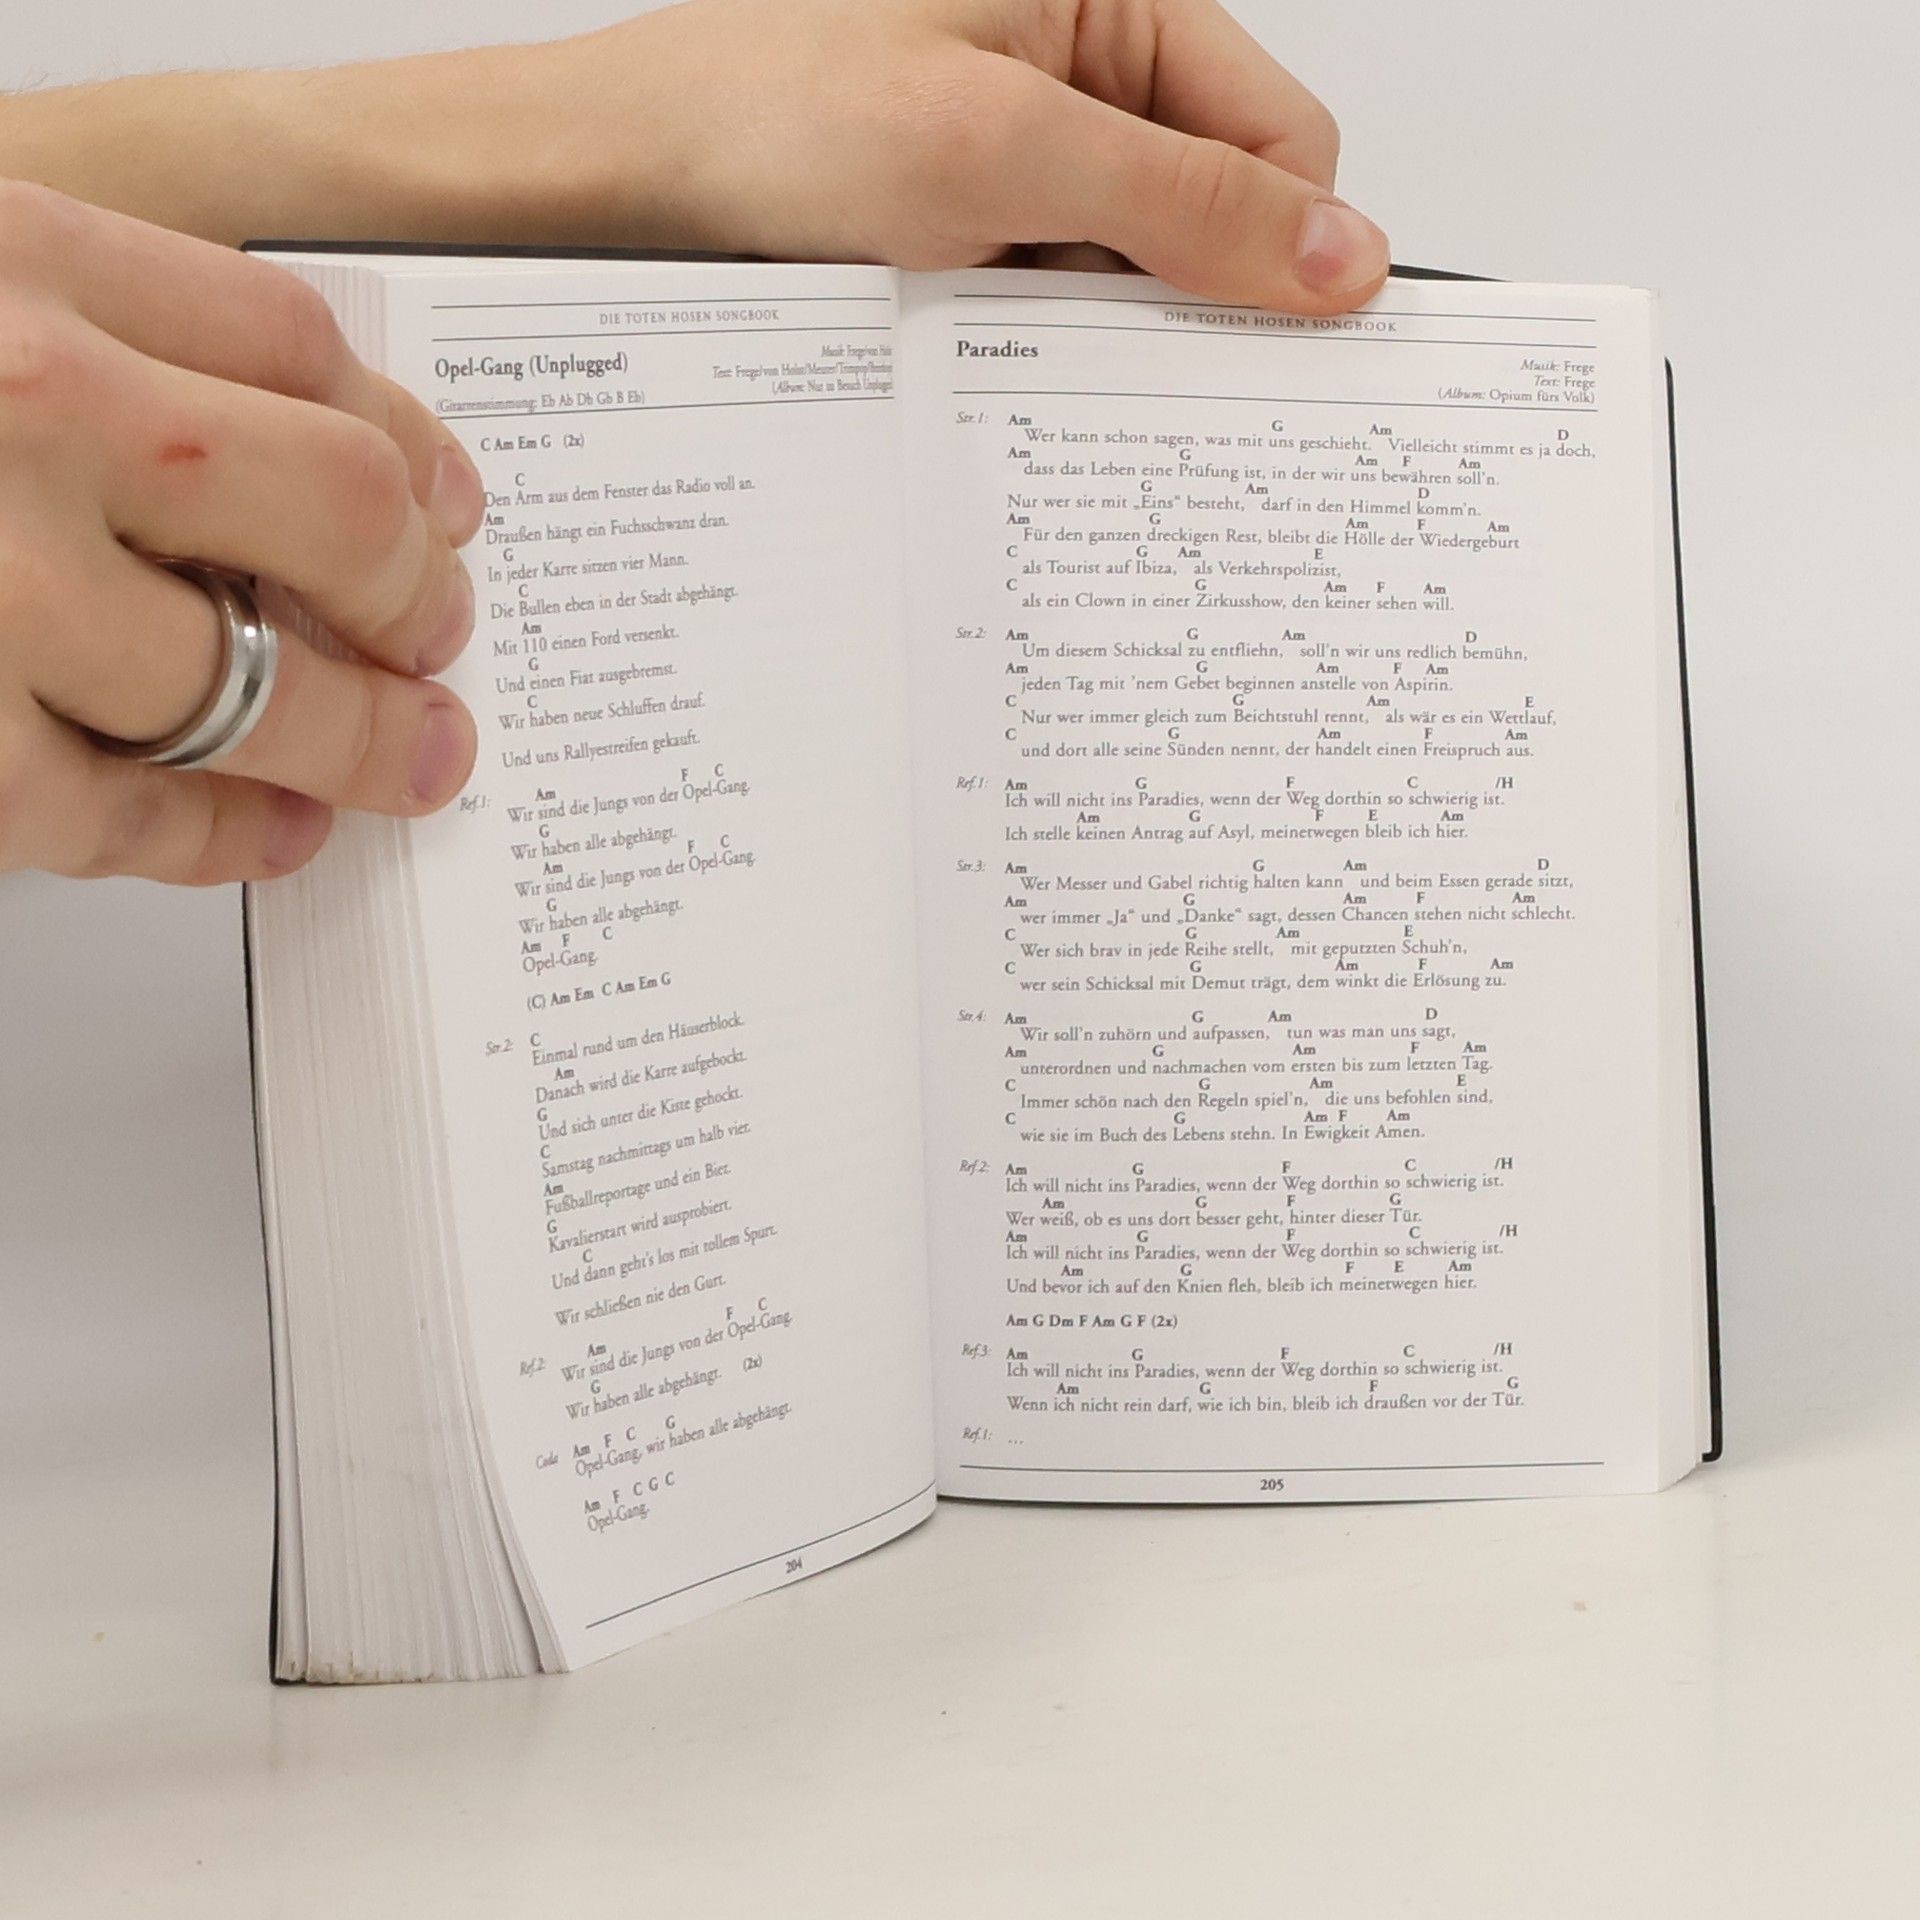 DIE TOTEN HOSEN SONGBOOK
Opel-Gang (Unplugged)
Musik: Frege/von Holst
Text: Frege/von Holst/Meurer/Trimpop/Breitkopf
(Album: Nur zu Besuch Unplugged
(Gitarrenstimmung: Eb Ab Db Gb B Eb)
C Am Em G (2x)
C
Den Arm aus dem Fenster das Radio voll an.
Am
Draußen hängt ein Fuchsschwanz dran.
G
In jeder Karre sitzen vier Mann.
C
Die Bullen eben in der Stadt abgehängt.
Am
Mit 110 einen Ford versenkt.
G
Und einen Fiat ausgebremst.
C
Wir haben neue Schluffen drauf.
Und uns Rallyestreifen gekauft.
Am F C
Ref.1: Wir sind die Jungs von der Opel-Gang.
G
Wir haben alle abgehängt.
Am F C
Wir sind die Jungs von der Opel-Gang.
G
Wir haben alle abgehängt.
Am F C
Opel-Gang.
(C) Am Em C Am Em G
Str.2: C
Einmal rund um den Häuserblock.
Am
Danach wird die Karre aufgebockt.
G
Und sich unter die Kiste gehockt.
C
Samstag nachmittags um halb vier.
Am
Fußballreportage und ein Bier.
G
Kavalierstart wird ausprobiert.
C
Und dann geht's los mit tollem Spurt.
Wir schließen nie den Gurt.
Am F C
Ref.2: Wir sind die Jungs von der Opel-Gang.
G
Wir haben alle abgehängt. (2x)
Coda Am F C G
Opel-Gang, wir haben alle abgehängt.
Am F C G C
Opel-Gang.
204
DIE TOTEN HOSEN SONGBOOK
Paradies
Musik: Frege
Text: Frege
(Album: Opium fürs Volk)
Str.1: Am G Am D
Wer kann schon sagen, was mit uns geschieht. Vielleicht stimmt es ja doch,
Am G Am F Am
dass das Leben eine Prüfung ist, in der wir uns bewähren soll'n.
G Am D
Nur wer sie mit „Eins“ besteht, darf in den Himmel komm'n.
Am G Am F Am
Für den ganzen dreckigen Rest, bleibt die Hölle der Wiedergeburt
C G Am E
als Tourist auf Ibiza, als Verkehrspolizist,
C G Am F Am
als ein Clown in einer Zirkusshow, den keiner sehen will.
Str.2: Am G Am D
Um diesem Schicksal zu entfliehn, soll'n wir uns redlich bemühn,
Am G Am F Am
jeden Tag mit 'nem Gebet beginnen anstelle von Aspirin.
C G Am E
Nur wer immer gleich zum Beichtstuhl rennt, als wär es ein Wettlauf,
C G Am F Am
und dort alle seine Sünden nennt, der handelt einen Freispruch aus.
Ref.1: Am G F C /H
Ich will nicht ins Paradies, wenn der Weg dorthin so schwierig ist.
Am G F E Am
Ich stelle keinen Antrag auf Asyl, meinetwegen bleib ich hier.
Str.3: Am G Am D
Wer Messer und Gabel richtig halten kann und beim Essen gerade sitzt,
Am G Am F Am
wer immer „Ja“ und „Danke“ sagt, dessen Chancen stehen nicht schlecht.
C G Am E
Wer sich brav in jede Reihe stellt, mit geputzten Schuh'n,
C G Am F Am
wer sein Schicksal mit Demut trägt, dem winkt die Erlösung zu.
Str.4: Am G Am D
Wir soll'n zuhörn und aufpassen, tun was man uns sagt,
Am G Am F Am
unterordnen und nachmachen vom ersten bis zum letzten Tag.
C G Am E
Immer schön nach den Regeln spiel'n, die uns befohlen sind,
C G Am F Am
wie sie im Buch des Lebens stehn. In Ewigkeit Amen.
Ref.2: Am G F C /H
Ich will nicht ins Paradies, wenn der Weg dorthin so schwierig ist.
Am G F G
Wer weiß, ob es uns dort besser geht, hinter dieser Tür.
Am G F C /H
Ich will nicht ins Paradies, wenn der Weg dorthin so schwierig ist.
Am G F E Am
Und bevor ich auf den Knien fleh, bleib ich meinetwegen hier.
Am G Dm F Am G F (2x)
Ref.3: Am G F C /H
Ich will nicht ins Paradies, wenn der Weg dorthin so schwierig ist.
Am G F G
Wenn ich nicht rein darf, wie ich bin, bleib ich draußen vor der Tür.
Ref.1: ...
205